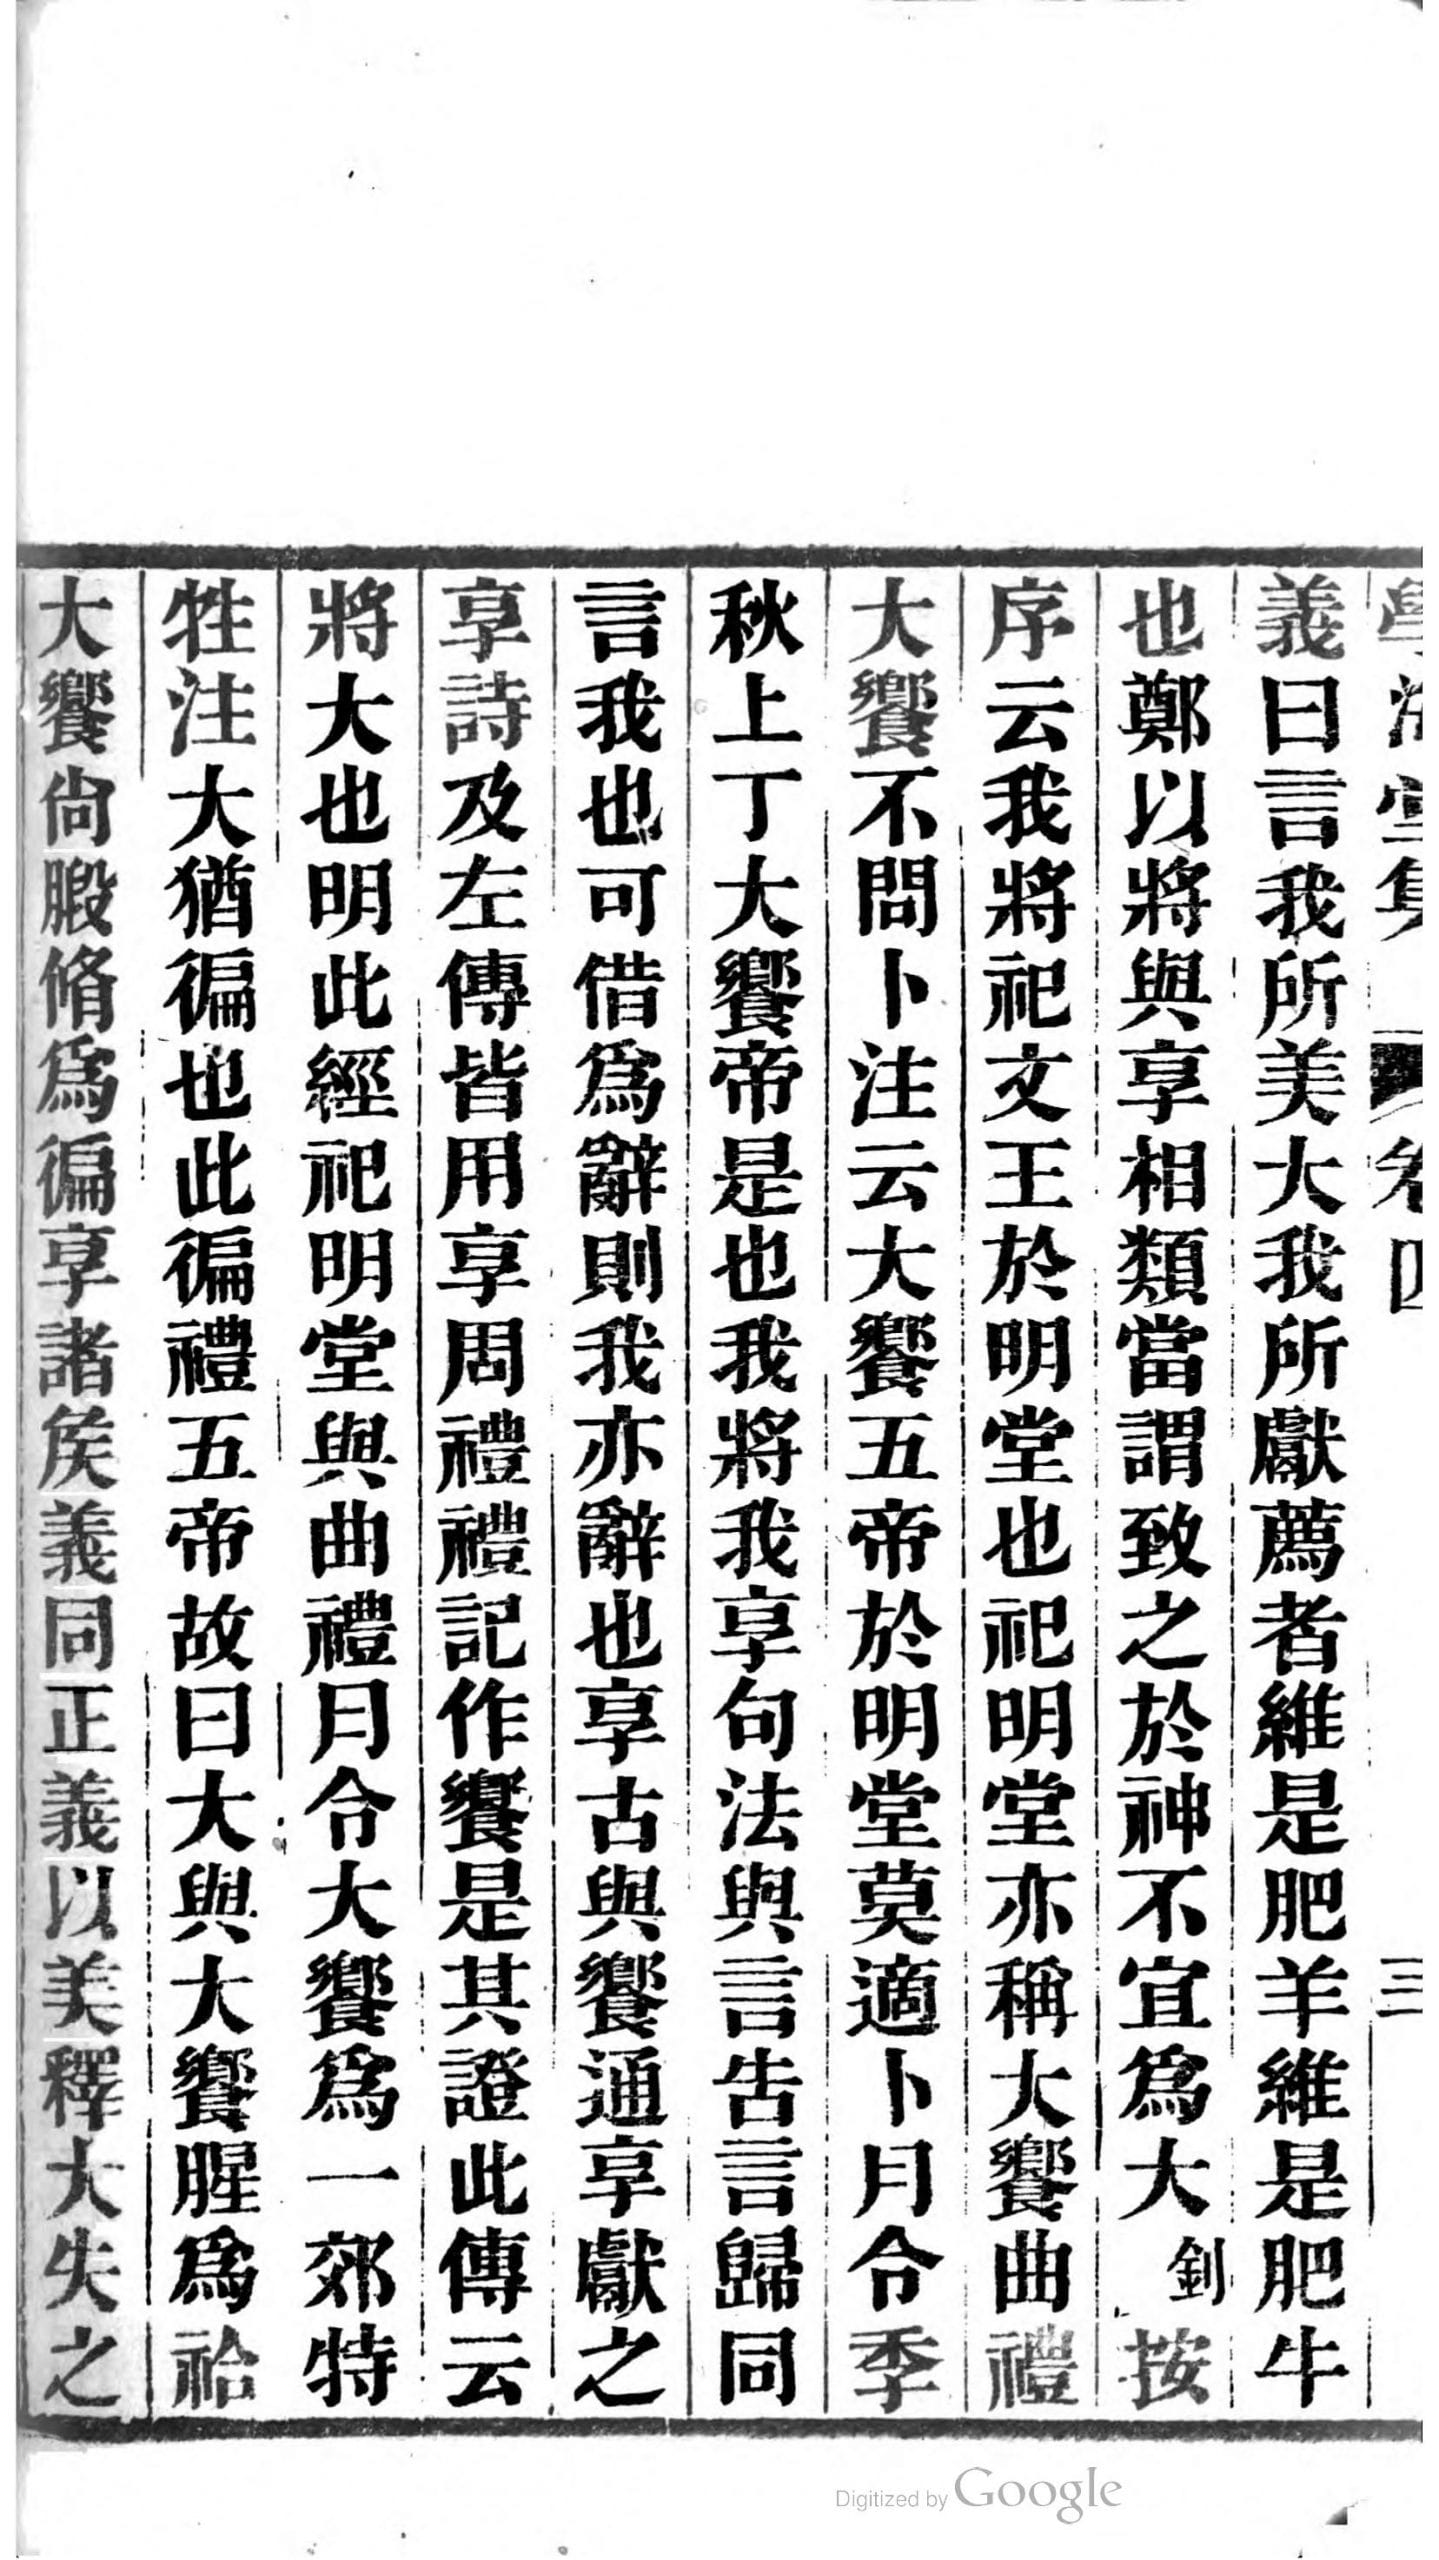 學海堂集 卷四 三
義曰言我所美大我所獻薦者維是肥羊維是肥牛
也鄭以將與享相類當謂致之於神不宜爲大釗按
序云我將祀文王於明堂也祀明堂亦稱大饗曲禮
大饗不問卜注云大饗五帝於明堂莫適卜月令季
秋上丁大饗帝是也我將我享句法與言告言歸同
言我也可借爲辭則我亦辭也享古與饗通享獻之
享詩及左傳皆用享周禮禮記作饗是其證此傳云
將大也明此經祀明堂與曲禮月令大饗爲一郊特
牲注大猶徧也此徧禮五帝故曰大與大饗腥爲祫
大饗尙腶脩爲徧享諸矦義同正義以美釋大失之
Digitized by Google